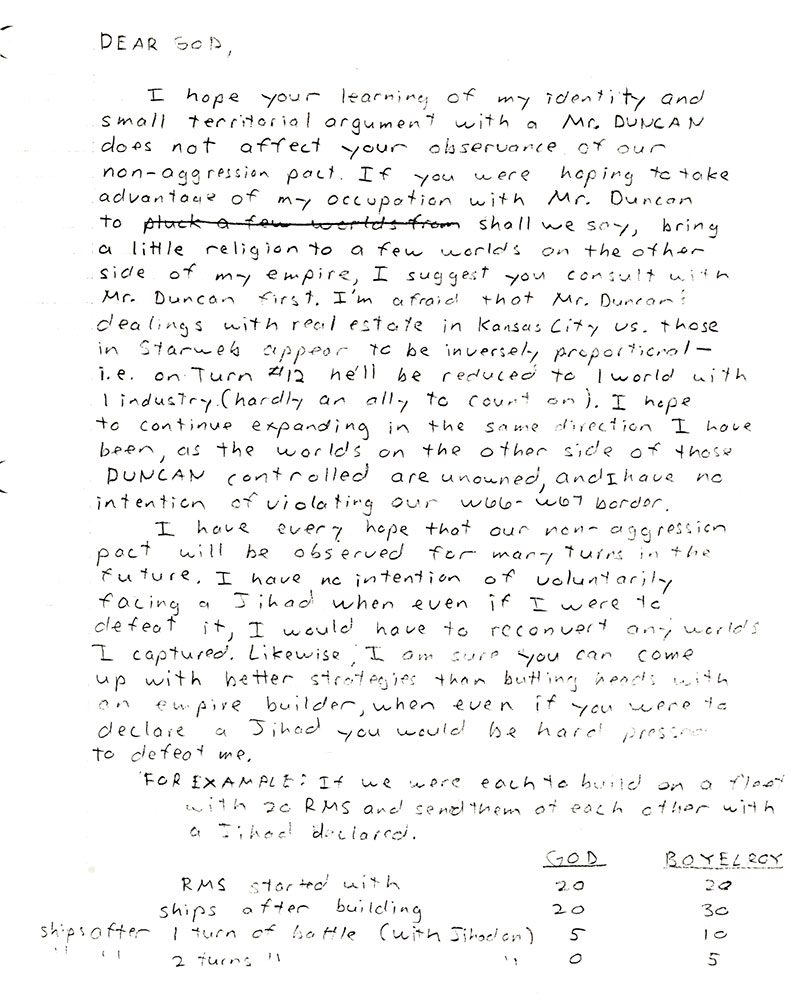 DEAR GOD,
I hope your learning of my identity and
small territorial argument with a Mr. DUNCAN
does not affect your observance of our
non-aggression pact. If you were hoping to take
advantage of my occupation with Mr. Duncan
to pluck a few worlds from shall we say, bring
a little religion to a few worlds on the other
side of my empire, I suggest you consult with
Mr. Duncan first. I'm afraid that Mr. Duncan's
dealings with real estate in Kansas City vs. those
in Starweb appear to be inversely proportional—
i.e. on Turn #12 he'll be reduced to 1 world with
1 industry. (hardly an ally to count on). I hope
to continue expanding in the same direction I have
been, as the worlds on the other side of those
DUNCAN controlled are unowned, and I have no
intention of violating our W66-W67 border.
I have every hope that our non-aggression
pact will be observed for many turns in the
future. I have no intention of voluntarily
facing a Jihad when even if I were to
defeat it, I would have to reconvert any worlds
I captured. Likewise, I am sure you can come
up with better strategies than butting heads with
an empire builder, when even if you were to
declare a Jihad you would be hard pressed
to defeat me.
FOR EXAMPLE: If we were each to build on a fleet
with 20 RMS and send them at each other with
a Jihad declared.
GOD BOYELROY
RMS started with 20 20
ships after building 20 30
ships after 1 turn of battle (with Jihad on) 5 10
" " 2 turns " " 0 5